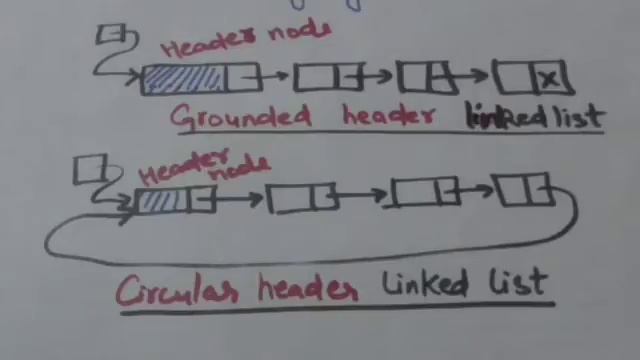 Header node
X
Grounded header linked list
Header
node
Circular header Linked list